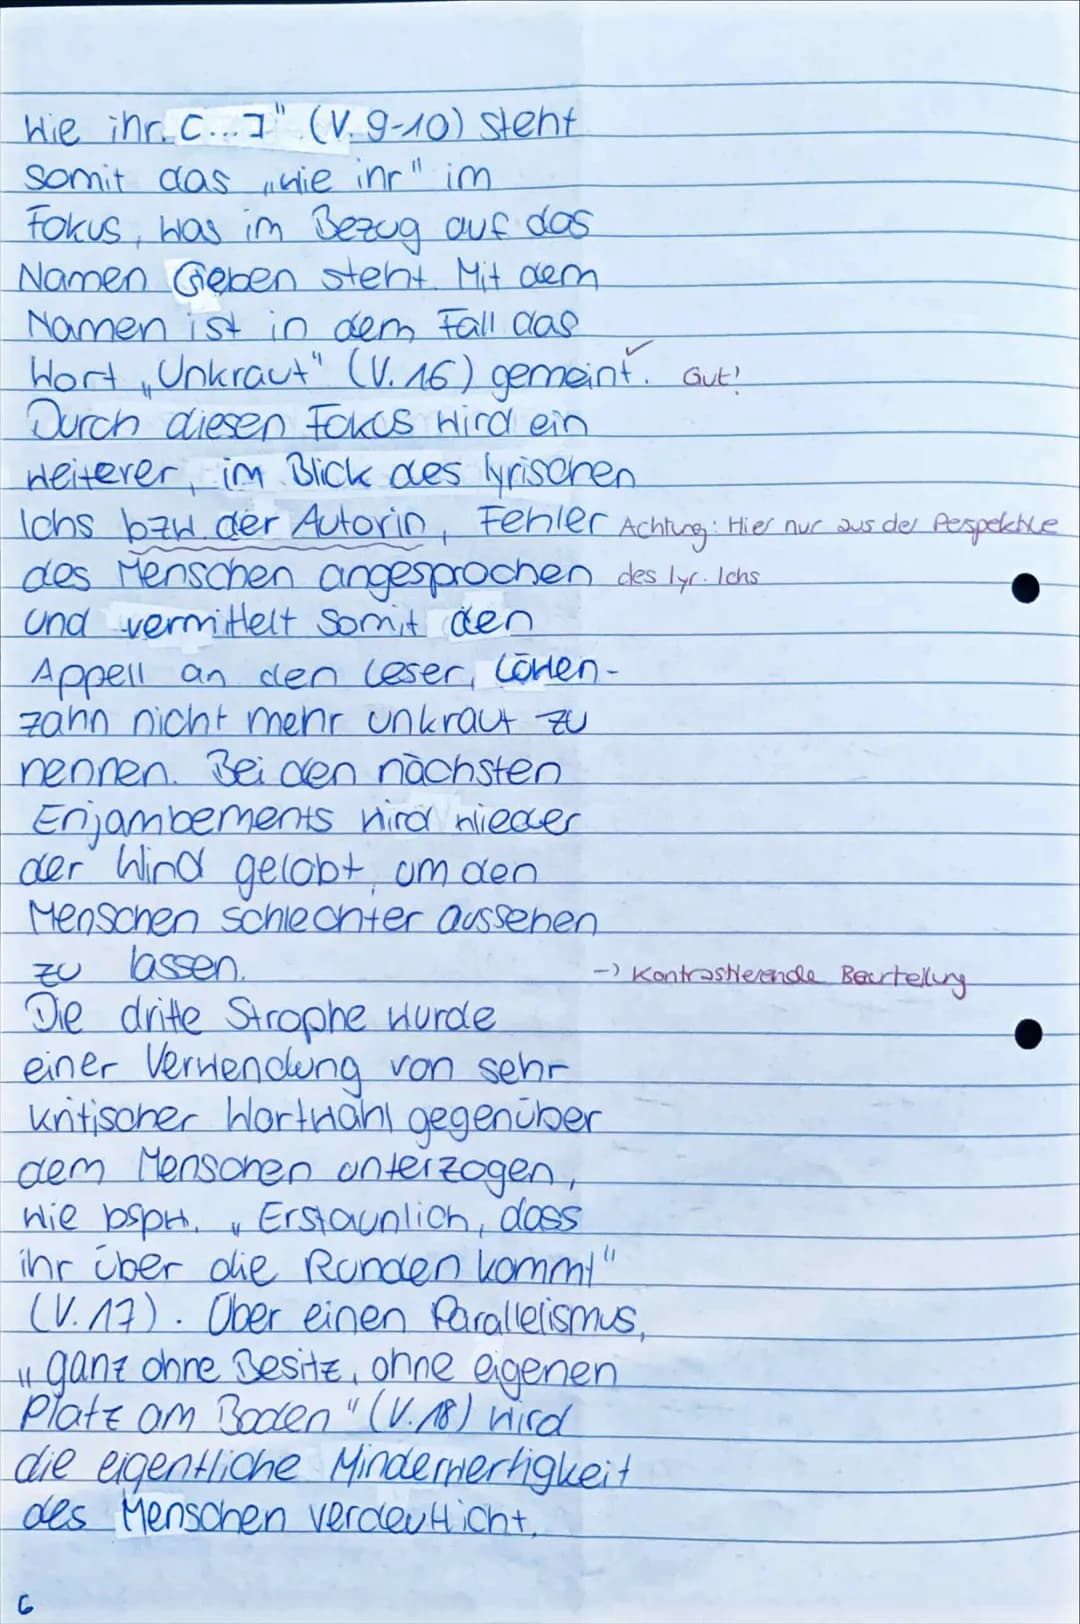 wie ihr. [...]" (V. 9-10) steht
somit das „wie ihr" im
Fokus, was im Bezug auf das
Namen Geben steht. Mit dem
Namen ist in dem Fall das
Wort „Unkraut" (V. 16) gemeint. ✓ Gut!
Durch diesen Fokus wird ein
weiterer, im Blick des lyrischen
Ichs bzw. der Autorin, Fehler Achtung: Hier nur aus der Perspektive
des Menschen angesprochen des lyr. Ichs
und vermittelt somit den
Appell an den Leser, Löwen-
zahn nicht mehr unkraut zu
nennen. Bei den nächsten
Enjambements wird wieder
der Wind gelobt, um den
Menschen schlechter aussehen
zu lassen. -> Kontrastierende Beurteilung
Die dritte Strophe wurde
einer Verwendung von sehr
kritischer Wortwahl gegenüber
dem Menschen unterzogen,
wie bspw. „Erstaunlich, dass
ihr über die Runden kommt"
(V. 17). Über einen Parallelismus,
„ganz ohne Besitz, ohne eigenen
Platz am Boden" (V. 18) wird
die eigentliche Minderwertigkeit
des Menschen verdeutlicht.
6